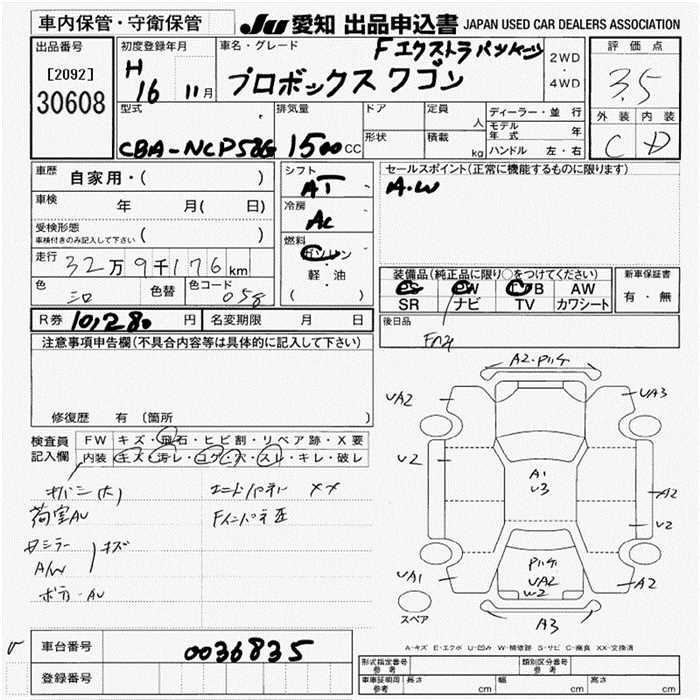 車内保管・守衛保管
JU 愛知 出品申込書 JAPAN USED CAR DEALERS ASSOCIATION
出品番号
[2092]
30608
初度登録年月
H
16 11月
車名・グレード
Fエクストラパッケージ
プロボックス ワゴン
2WD
・
4WD
評価点
3.5
外装 内装
C D
型式
CBA-NCP58G
排気量
1500CC
ドア
形状
定員
人
積載
kg
ディーラー・並行
モデル年式 年
ハンドル 左・右
車歴
自家用・( )
車検
年 月( 日)
受検形態
車検付きのみ記入して下さい ( )
走行
32万9千176km
色
シロ
色替
色コード
058
シフト
AT
冷房
AC
燃料
ガソリン
・
軽・油
( )
セールスポイント(正常に機能するものに限ります)
A.W
装備品(純正品に限り○をつけてください)
PS PW エアB AW
SR ナビ TV カワシート
新車保証書
有・無
R券 10,280 円
名変期限 月 日
後日品
注意事項申告欄(不具合内容等は具体的に記入して下さい)
修復歴 有 (箇所 )
検査員
記入欄
FW キズ・飛石・ヒビ割・リペア跡・X要
内装 キズ・汚レ・コゲ・穴・スレ・キレ・破レ
荷室AU
エンドパネル XX
キズ
A/W
ボデーAU
A2・ハゲ
UA2
UA3
U2
A1
U3
A2
U2
UA1
UA2
W2
A2
A3
スペア
A-キズ E-エクボ U-凹み W-補修跡 S-サビ C-腐食 XX-交換済
車台番号
0036835
登録番号
型式指定番号
参考
類別区分番号
参考
車車証明用
参考
長さ cm
幅 cm
高さ cm